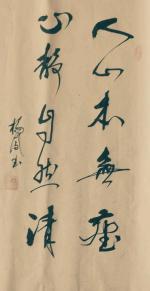 人心本無塵
心静自然清